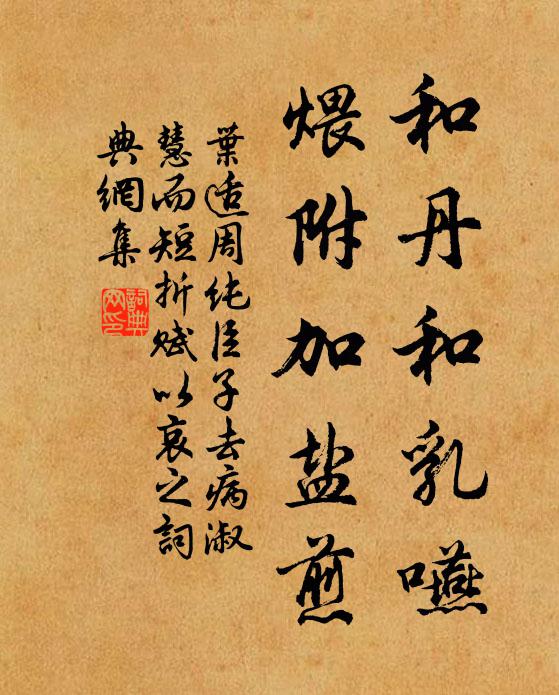 和丹和乳嚥
煨附加盐煎
葉适周純臣子去病淑
慧而短折賦以哀之詞
典網集
詞典
网印